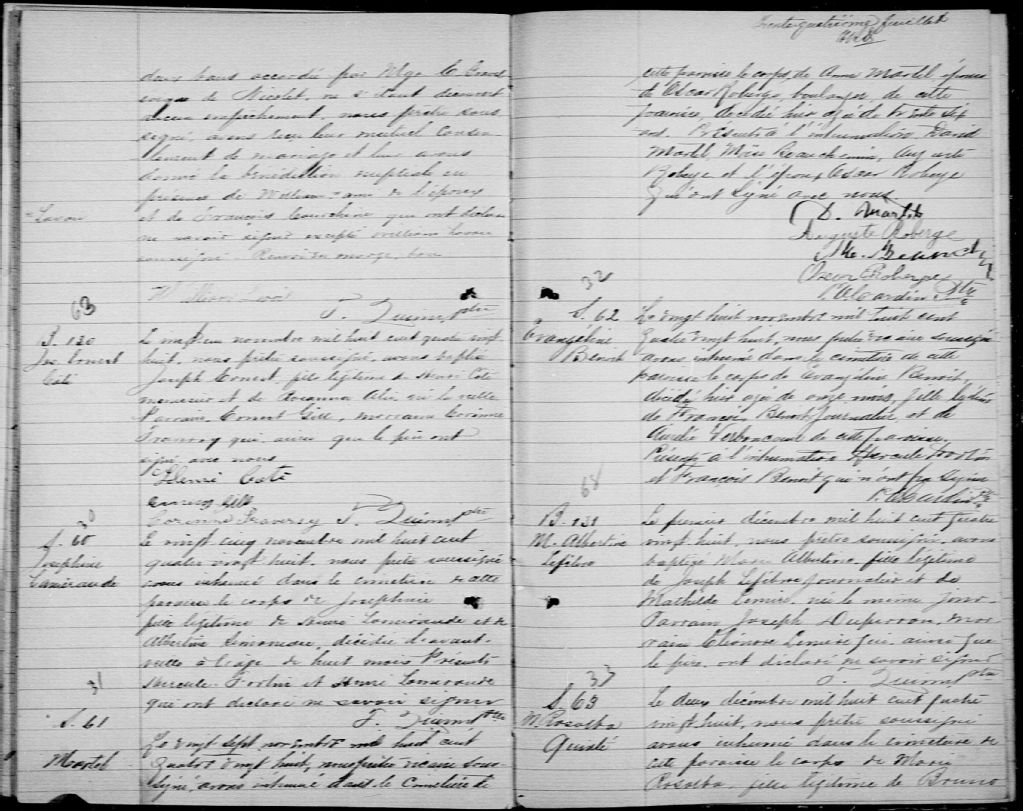 deux bans accordée par Mgr E. Grand
vicaire de Nicolet, ne s'étant découvert
aucun empêchement, nous prêtre sous
signé, avons reçu leur mutuel consen
tement de mariage et leur avons
donné la bénédiction nuptiale en
présence de William ami de l'époux
et de François qui ont déclaré
ne savoir signer excepté William
soussigné. Renvoi en marge, bon
Savoie
William
T. Quinn ptre
63
B. 130
Jos. Ernest
Coté
Le vingt un novembre mil huit cent quatre vingt
huit, nous prêtre soussigné, avons baptisé
Joseph Ernest, fils légitime de Henri Coté
menuisier et de Rosanna né la veille
Parrain Ernest Gill, marraine Corinne
qui, ainsi que le père ont
signé avec nous
Henri Coté
Ernest Gill
T. Quinn ptre
30
S. 60
Josephine
Lamirande
Le vingt cinq novembre mil huit cent
quatre vingt huit, nous prêtre soussigné
avons inhumé dans le cimetière de cette
paroisse le corps de Josephine
fille légitime de Henri Lamirande et de
Albertine décédée d'avant
veille à l'âge de huit mois. Présents
Hercule Fortin et Henri Lamirande
qui ont déclaré ne savoir signer
T. Quinn ptre
31
S. 61
Martel
Le vingt sept novembre mil huit cent
quatre vingt huit, nous prêtre vicaire sous-
signé, avons inhumé dans le cimetière de
Trente-quatrième feuillet
cette paroisse le corps de Anna Martel épouse
de Oscar Roberge, boulanger de cette
paroisse, décédée hier âgée de trente sept
ans. Présents à l'inhumation David
Martel, Moïse Beauchemin, Auguste
Roberge et l'époux Oscar Roberge
qui ont signé avec nous
D. Martel
Auguste Roberge
Oscar Roberge
Ptre
32
S. 62
Evangéline
Benoit
Le vingt huit novembre mil huit cent
quatre vingt huit, nous prêtre vicaire soussigné
avons inhumé dans le cimetière de cette
paroisse le corps de Evangéline Benoit,
décédée hier agée de onze mois, fille légitime
de François Benoit journalier et de
Aurélie de cette paroisse.
Présents à l'inhumation Hercule Fortin
et François Benoit qui n'ont pu signer
68
B. 131
M. Albertine
Lefebvre
Le premier décembre mil huit cent quatre
vingt huit, nous prêtre soussigné, avons
baptisé Marie Albertine, fille légitime
de Joseph Lefebvre journalier et de
Mathilde Lemire, née le même jour.
Parrain Joseph Duperron, mar
raine Eléonore Lemire qui, ainsi que
le père, ont déclaré ne savoir signer
T. Quinn ptre
33
S. 63
M. Rosalba
Le deux décembre mil huit cent quatre
vingt huit, nous prêtre soussigné
avons inhumé dans le cimetière de
cette paroisse le corps de Marie
Rosalba, fille légitime de Bruno